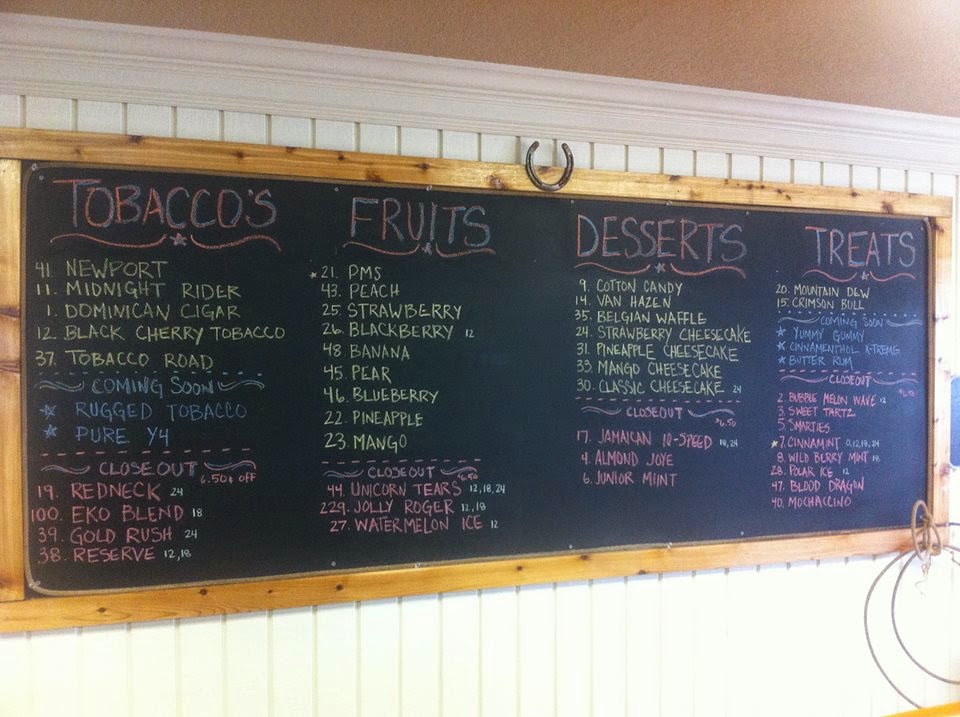 TOBACCO'S
41 NEWPORT
11. MIDNIGHT RIDER
1. DOMINICAN CIGAR
12. BLACK CHERRY TOBACCO
37. TOBACCO ROAD
COMING SOON
RUGGED TOBACCO
PURE Y4
CLOSEOUT
6.50¢ OFF
19. REDNECK 24
100. EKO BLEND 18
39. GOLD RUSH 24
38. RESERVE 12,18
FRUITS
21. PMS
43. PEACH
25. STRAWBERRY
26. BLACKBERRY 12
48. BANANA
45. PEAR
46. BLUEBERRY
22. PINEAPPLE
23. MANGO
CLOSEOUT
$6.50
44. UNICORN TEARS 12,18,24
229. JOLLY ROGER 12,18
27. WATERMELON ICE 12
DESSERTS
9. COTTON CANDY
14. VAN HAZEN
35. BELGIAN WAFFLE
24. STRAWBERRY CHEESECAKE
31. PINEAPPLE CHEESECAKE
33. MANGO CHEESECAKE
30. CLASSIC CHEESECAKE 24
CLOSEOUT
$6.50
17. JAMAICAN 10-SPEED 18,24
4. ALMOND JOYE
6. JUNIOR MIINT
TREATS
20. MOUNTAIN DEW
15. CRIMSON BULL
COMING SOON
YUMMY GUMMY
CINNAMENTHOL X-TREME
BUTTER RUM
CLOSEOUT
$6.50
2. BUBBLE MELON WAVE 12
3. SWEET TARTZ
5. SMARTIES
7. CINNAMINT 0,12,18,24
8. WILD BERRY MINT 18
28. POLAR ICE 12
47. BLOOD DRAGON
40. MOCHACCINO